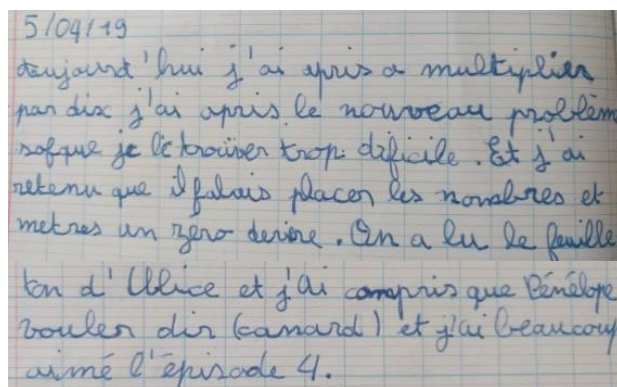 5/09/19
aujourd'hui j'ai apris a multiplier
par dix j'ai apris le nouveau problèm
sofque je le trouver trop dificile. Et j'ai
retenu que il falais placer les nombres et
metres un zéro derire. On a lu le feuille
ton d'Ulice et j'ai compris que Pénélope
vouler dir (canard) et j'ai beaucoup
aimé l'épisode 4.